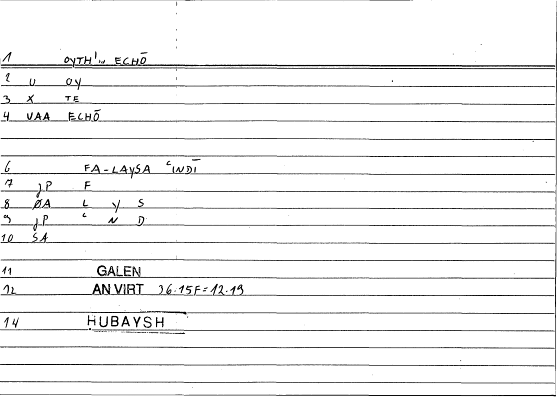 1 OYTH'N ECHŌ
2 U OY
3 X TE
4 VAA ECHŌ
6 FA-LAYSA ʿINDĪ
7 JP F
8 ØA L Y S
9 JP ʿ N D
10 SA
11 GALEN
12 AN VIRT 26.15F = 12.19
14 HUBAYSH